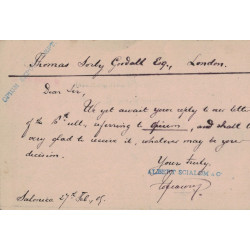 Thomas Sorby Goodall Esq., London.
Dear Sir,
We yet await your reply to our letter
of the 8th ult., referring to and shall be
very glad to receive it, whatever may be your
decision.
Yours truly,
ALBERT SCIALOM & Co
Salonica 27th Feb,